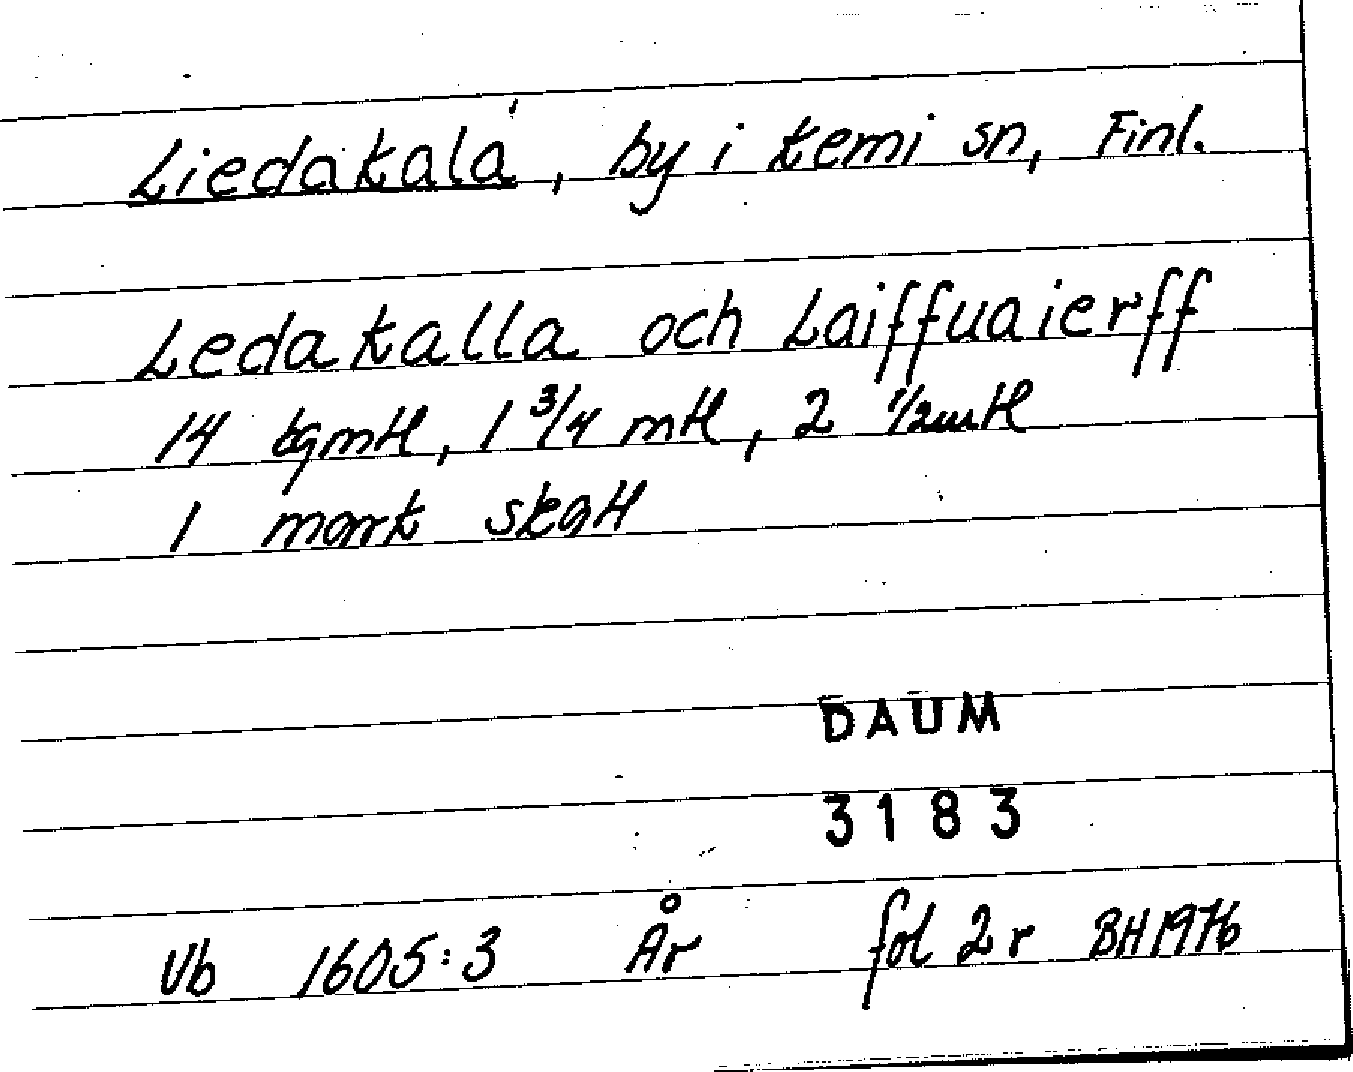 Liedakala, by i Kemi sn, Finl.
Ledakalla och Laiffuaierff
14 bgmtl, 1 3/4 mtl, 2 1/2 mtl
1 mark skatt
DAUM
3183
Vb 1605:3 År fol 2r BH 1976